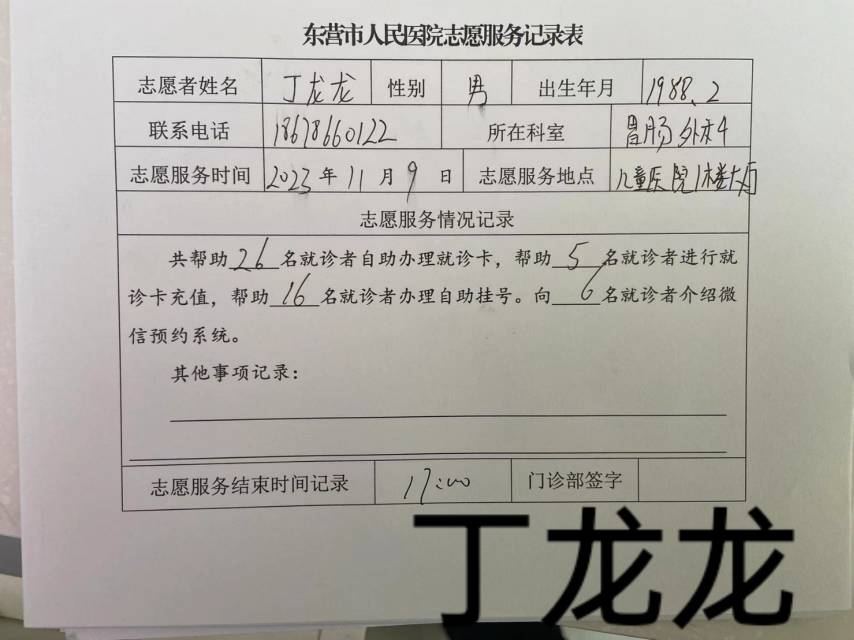 东营市人民医院志愿服务记录表
志愿者姓名 丁龙龙 性别 男 出生年月 1988.2
联系电话 18678660122 所在科室 胃肠外科4
志愿服务时间 2023年11月9日 志愿服务地点 儿童医院1楼大厅
志愿服务情况记录
共帮助26名就诊者自助办理就诊卡，帮助5名就诊者进行就
诊卡充值，帮助16名就诊者办理自助挂号。向6名就诊者介绍微
信预约系统。
其他事项记录：
志愿服务结束时间记录 17:00 门诊部签字
丁龙龙